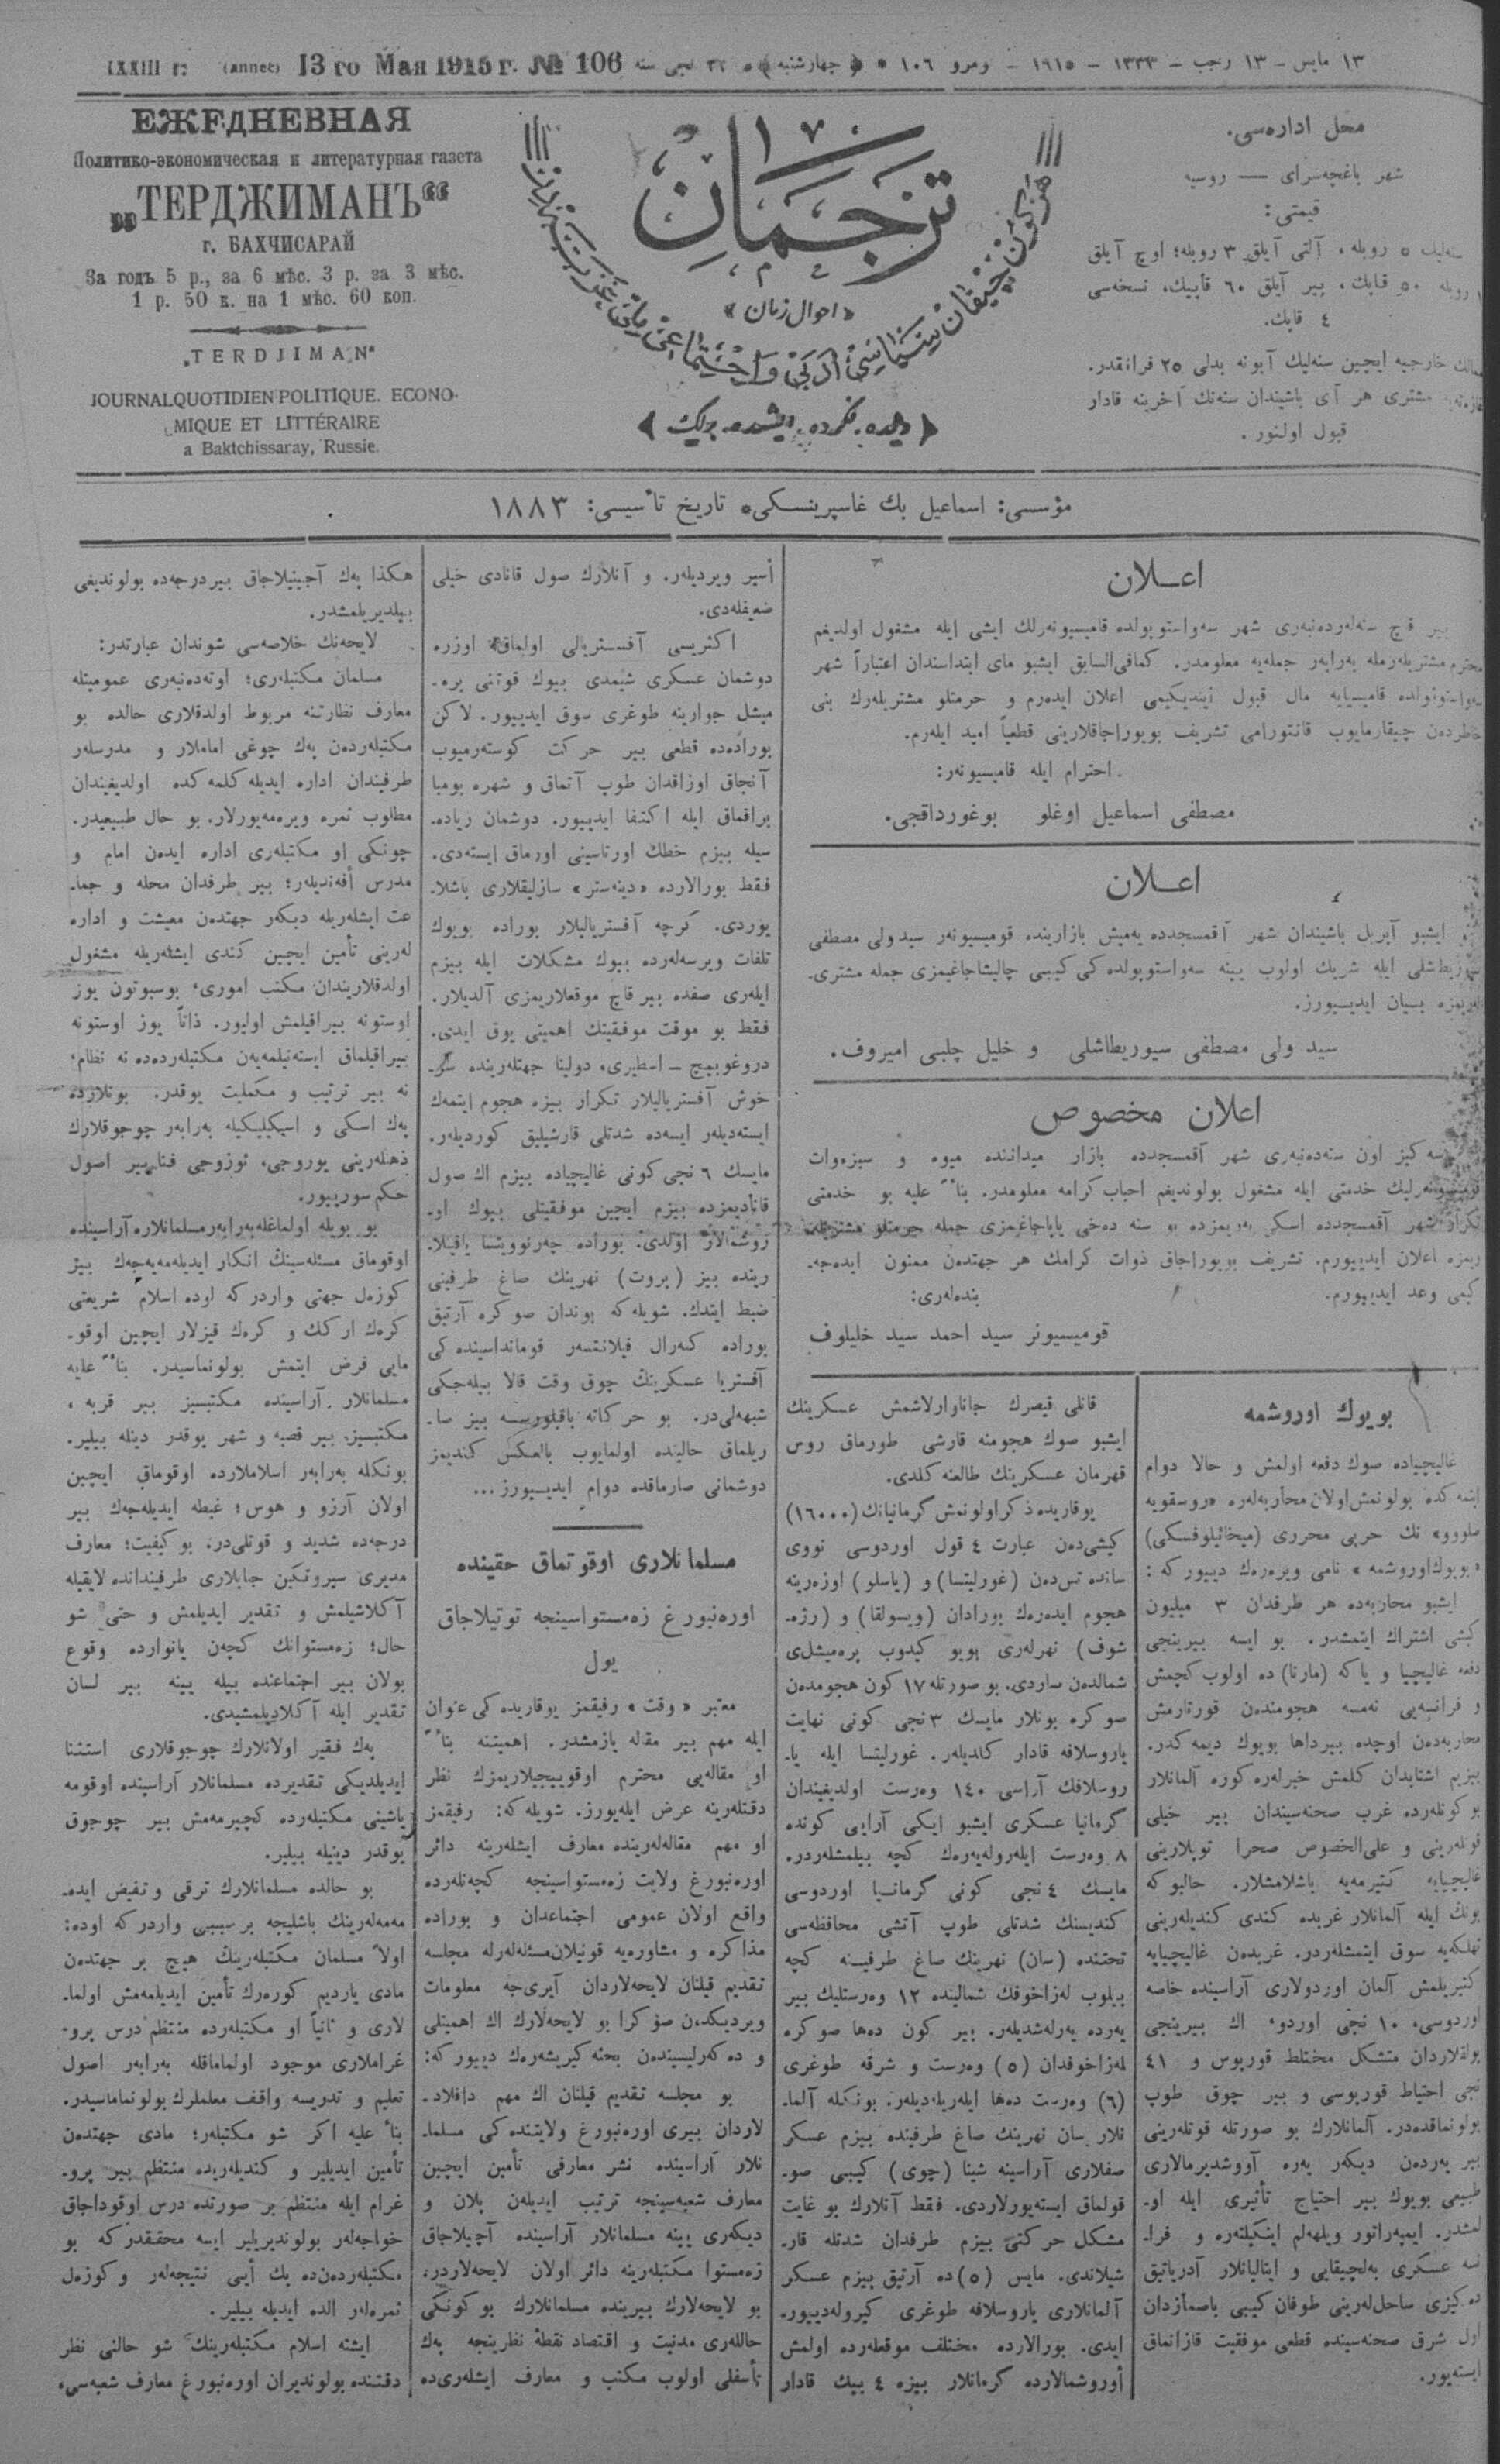 ١٣ مايس - ١٣ رجب - ١٣٣٣ - ١٩١٥ - نومرو ١٠٦ * (چهارشنبه) * ٣٢ نجى سنه
XXXIII г. (annee) 13 го Мая 1915 г. № 106
ЕЖЕДНЕВНАЯ
Политико-экономическая и литературная газета
„ТЕРДЖИМАНЪ“
г. БАХЧИСАРАЙ
За годъ 5 р., за 6 мѣс. 3 р. за 3 мѣс.
1 р. 50 к. на 1 мѣс. 60 коп.
„TERDJIMAN“
JOURNAL QUOTIDIEN POLITIQUE. ECONO-
MIQUE ET LITTÉRAIRE
a Baktchissaray, Russie.
ترجمان
«احوال زمان»
«ديلده، فكرده، ايشده برلك»
محل اداره‌سى.
شهر باغچه‌سراى — روسيه
قيمتى:
سنه‌ليك ٥ روبله، آلتى آيلق ٣ روبله؛ اوچ آيلق
١ روبله ٥٠ قاپك، بير آيلق ٦٠ قاپيك، نسخه‌سى
٤ قاپك.
ممالك خارجيه ايچين سنه‌ليك آبونه بدلى ٢٥ فرانقدر.
مشترى هر آى باشيندان سنه‌نك آخرينه قادار
قبول اولنور.
مؤسسى: اسماعيل بك غاسپرينسكى* تاريخ تأسيسى: ١٨٨٣
اعــلان
بير قاچ سنه‌لرده‌نبه‌رى شهر سه‌واستوپولده قاميسيونه‌رلك ايشى ايله مشغول اولديغم
محترم مشتريله‌رمله به‌رابه‌ر جمله‌يه معلومدر. كمافى‌السابق ايشبو ماى ابتداسندان اعتباراً شهر
قاميسيايه مال قبول ايتديكيمى اعلان ايده‌رم و حرمتلو مشتريله‌رك بنى
خاطردن چيقارمايوب قانتورامى تشريف بويوراجاقلارينى قطعياً اميد ايله‌رم.
احترام ايله قاميسيونه‌ر:
مصطفى اسماعيل اوغلو بوغورداقجى.
اعــلان
ايشبو آپريل باشيندان شهر آقمسجدده يه‌ميش بازارينده قوميسيونه‌ر سيد ولى مصطفى
ايله شريك اولوب يينه سه‌واستوپولده كى كيبى چاليشاجاغيمزى جمله مشترى-
له‌ريمزه بيان ايديـيورز.
سيد ولى مصطفى سيوريطاشلى و خليل چلبى اميروف.
اعلان مخصوص
سه‌كيز اون سنه‌ده‌نبه‌رى شهر آقمسجدده بازار ميداننده ميوه و سبزه‌وات
قوميسيونه‌رليك خدمتى ايله مشغول بولونديغم احباب كرامه معلومدر. بناءً عليه بو خدمتى
تكرار شهر آقمسجدده اسكى يه‌ريمزده بو سنه ده‌خى ياپاجاغيمزى جمله حرمتلو مشتريلـ
ريمزه اعلان ايديـيورم. تشريف بويوراجاق ذوات كرامك هر جهتدن ممنون ايده‌جه-
كيمى وعد ايديـيورم. بنده‌له‌رى:
قوميسيونر سيد احمد سيد خليلوف
بويوك اوروشمه
غاليچياده صوك دفعه اولمش و حالا دوام
ايتمه‌كده بولونمش اولان محاربه‌له‌ره «روسقويه
صلووو» نك حربى محررى (ميخائيلوفسكى)
«بويوك اوروشمه» نامى ويره‌رك دييور كه:
ايشبو محاربه‌ده هر طرفدان ٣ ميليون
كيشى اشتراك ايتمشدر. بو ايسه بيرينجى
دفعه غاليچيا و ياكه (مارنا) ده اولوب كچمش
و فرانسه‌يى نه‌مسه هجومندن قورتارمش
محاربه‌دن اوچده بير داها بويوك ديمه كدر.
بيزيم اشتابدان كلمش خبرله‌ره كوره آلمانلار
بو كونله‌رده غرب صحنه‌سيندان بير خيلى
قوتله‌رينى و على‌الخصوص صحرا توپلارينى
غاليچيايه كتيرمه‌يه باشلامشلار. حالبوكه
بونك ايله آلمانلار غربده كندى كنديله‌رينى
تهلكه‌يه سوق ايتمشله‌ردر. غربدن غاليچيايه
كتيريلمش آلمان اوردولارى آراسينده خاصه
اوردوسى، ١٠ نجى اوردو، اك بيرينجى
متشكل مختلط قورپوس و ٤١
نجى احتياط قورپوسى و بير چوق طوپ
بولونماقده‌در. آلمانلارك بو صورتله قوتله‌رينى
بير يه‌ردن ديكه‌ر يه‌ره آووشديرمالارى
طبيعى بويوك بير احتياج تأثيرى ايله او-
لمشدر. ايمپه‌راتور ويلهه‌لم اينكيلته‌ره و فرا-
نسه عسكرى به‌لچيقايى و ايتاليانلار آدرياتيق
ده‌كيزى ساحل‌له‌رينى طوفان كيبى باصمازدان
اول شرق صحنه‌سينده قطعى موفقيت قازانماق
ايسته‌يور.
قانلى قيصرك جاناوارلاشمش عسكرينك
ايشبو صوك هجومنه قارشى طورماق روس
قهرمان عسكرينك طالعنه كلدى.
يوقاريده ذكر اولونمش گرمانيانك (١٦٠٠٠)
كيشى‌ده‌ن عبارت ٤ قول اوردوسى نووى
سانده‌تس‌ده‌ن (غورليتسا) و (ياسلو) اوزه‌رينه
هجوم ايده‌ره‌ك بورادان (ويسولقا) و (رژه-
شوف) نهرله‌رى بويو كيدوب پره‌ميشل‌ى
شمالدن ساردى. بو صورتله ١٧ كون هجومدن
صوكره بونلار مايسك ٣ نجى كونى نهايت
ياروسلافه قادار كلديله‌ر. غورليتسا ايله يا-
روسلافك آراسى ١٤٠ وه‌رست اولديغيندان
گرمانيا عسكرى ايشبو ايكى آرايى كونده
٨ وه‌رست ايله‌روله‌يه‌ره‌ك كچه بيلمشله‌ردر.
مايسك ٤ نجى كونى گرمانيا اوردوسى
كنديسنك شدتلى طوپ آتشى محافظه‌سى
تحتنده (سان) نهرينك صاغ طرفينه كچه
بيلوب له‌زاخوفك شمالينده ١٢ وه‌رستليك بير
يه‌رده يه‌رله‌شديله‌ر. بير كون ده‌ها صوكره
له‌زاخوفدان (٥) وه‌رست و شرقه طوغرى
(٦) وه‌رست ده‌ها ايله‌ريله‌ديله‌ر. بونكله آلما-
نلار سان نهرينك صاغ طرفينده بيزم عسكر
صفلارى آراسينه شينا (چوى) كيبى صو-
قولماق ايسته‌يورلاردى. فقط آنلارك بو غايت
مشكل حركتى بيزم طرفدان شدتله قار-
شيلاندى. مايس (٥) ده آرتيق بيزم عسكر
آلمانلارى ياروسلافه طوغرى كيروله‌دييور-
ايدى. بورالارده مختلف موقعله‌رده اولمش
أوروشمالارده گرمانلار بيزه ٤ بيك قادار
أسير ويرديله‌ر. و آنلارك صول قانادى خيلى
ضعيفله‌دى.
اكثريسى آفستريالى اولماق اوزره
دوشمان عسكرى شيمدى بيوك قوتنى پره-
ميشل جوارينه طوغرى سوق ايدييور. لاكن
بوراده‌ده قطعى بير حركت كوسته‌رميوب
آنجاق اوزاقدان طوپ آتماق و شهره بومبا
براقماق ايله اكتفا ايدييور. دوشمان زياده-
سيله بيزم خطك اورتاسينى اورماق ايسته‌دى.
فقط بورالارده «دينه‌ستر» سازليقلارى باشلا-
يوردى. كرچه آفستريالىلار بوراده بويوك
تلفات ويرسه‌له‌رده بيوك مشكلات ايله بيزم
ايله‌رى صفده بير قاچ موقعلاريمزى آلديلار.
فقط بو موقت موفقيتك اهميتى يوق ايدى.
دروغوبيچ - اسطيرى، دولينا جهتله‌رينده سر-
خوش آفستريالىلار تكرار بيزه هجوم ايتمه‌ك
ايسته‌ديله‌ر ايسه‌ده شدتلى قارشيليق كورديله‌ر.
مايسك ٦ نجى كونى غاليچياده بيزم اك صول
قاناديمزده بيزم ايچين موفقيتلى بيوك او-
روشمالار اولدى. بوراده چه‌رنوويتسا ياقينلا-
رينده بيز (پروت) نهرينك صاغ طرفينى
ضبط ايتدك. شويله كه بوندان صوكره آرتيق
بوراده كنه‌رال فپلانتسه‌ر قومانداسينده كى
آفستريا عسكرينك چوق وقت قالا بيله‌جكى
شبهه‌لى‌در. بو حركاته باقيلورسه بيز صا-
ريلماق حالينده اولمايوب بالعكس كنديمز
دوشمانى صارماقده دوام ايديـيورز...
مسلمانلارى اوقوتماق حقينده
اوره‌نبورغ زه‌مستواسينجه توتيلاجاق
يول
معتبر «وقت» رفيقمز يوقاريده كى عنوان
ايله مهم بير مقاله يازمشدر. اهميتنه بناءً
او مقاله‌يى محترم اوقوييجيلاريمزك نظر
دقتله‌رينه عرض ايله‌يورز. شويله كه: رفيقمز
او مهم مقاله‌له‌رينده معارف ايشله‌رينه دائر
اوره‌نبورغ ولايت زه‌مستواسينجه كچه‌نله‌رده
واقع اولان عمومى اجتماعدان و بوراده
مذاكره و مشاوره‌يه قونيلان مسئله‌له‌رله مجلسه
تقديم قيلنان لايحه‌لاردان آيرى‌جه معلومات
ويرديكدن صوكرا بو لايحه‌لارك اك اهميتلى
و ده‌كه‌رليسيندن بحثه كيريشه‌ره‌ك دييور كه:
بو مجلسه تقديم قيلنان اك مهم داقلاد-
لاردان بيرى اوره‌نبورغ ولايتنده كى مسلما-
نلار آراسينده نشر معارفى تأمين ايچين
معارف شعبه‌سينجه ترتيب ايديله‌ن پلان و
ديكه‌رى يينه مسلمانلار آراسينده آچيلاجاق
زه‌مستوا مكتبله‌رينه دائر اولان لايحه‌لاردر.
بو لايحه‌لارك بيرينده مسلمانلارك بو كونكى
حالله‌رى مدنيت و اقتصاد نقطهٔ نظرينجه په‌ك
تأسفلى اولوب مكتب و معارف ايشله‌رى‌ده
هكذا په‌ك آجينيلاجاق بير درجه‌ده بولونديغى
بيلديريلمشدر.
لايحه‌نك خلاصه‌سى شوندان عبارتدر:
مسلمان مكتبله‌رى؛ اوته‌ده‌نبه‌رى عموميتله
معارف نظارتنه مربوط اولدقلارى حالده بو
مكتبله‌رده‌ن په‌ك چوغى اماملار و مدرسله‌ر
طرفيندان اداره ايديله كلمه‌كده اولديغيندان
مطلوب ثمره ويره‌مه‌يورلار. بو حال طبيعيدر.
چونكى او مكتبله‌رى اداره ايده‌ن امام و
مدرس أفنديله‌ر؛ بير طرفدان محله و جما-
عت ايشله‌ريله ديكه‌ر جهتده‌ن معيشت و اداره
له‌رينى تأمين ايچين كندى ايشله‌ريله مشغول
اولدقلاريندان مكتب امورى، بوسبوتون يوز
اوستونه بيراقيلمش اوليور. ذاتاً يوز اوستونه
بيراقيلماق ايسته‌نيلمه‌يه‌ن مكتبله‌رده‌ده نه نظام؛
نه بير ترتيب و مكمليت يوقدر. بونلارده
په‌ك اسكى و اسپكيليكيله به‌رابه‌ر چوجوقلارك
ذهنله‌رينى يوروجى، ئوزوجى فنا بير اصول
حكم سورييور.
بو بويله اولماغله به‌رابه‌ر مسلمانلار آراسينده
اوقوماق مسئله‌سينك انكار ايديله‌مه‌يه‌جه‌ك بير
كوزه‌ل جهتى واردر كه اوده اسلام شريعتى
كره‌ك ارككـ و كره‌ك قيزلار ايچين اوقو-
مايى فرض ايتمش بولونماسيدر. بناءً عليه
مسلمانلار آراسينده مكتبسيز بير قريه،
مكتبسيز بير قصبه و شهر يوقدر دينله بيلير.
بونكله به‌رابه‌ر اسلاملارده اوقوماق ايچين
اولان آرزو و هوس؛ غبطه ايديله‌جه‌ك بير
درجه‌ده شديد و قوتلى‌در. بو كيفيت؛ معارف
مديرى سيروتكين جنابلارى طرفيندانده لايقيله
آكلاشيلمش و تقدير ايديلمش و حتى شو
حال؛ زه‌مستوانك كچه‌ن يانوارده وقوع
بولان بير اجتماعنده بيله يينه بير لسان
تقدير ايله آكلاديلمشيدى.
په‌ك فقير اولانلارك چوجوقلارى استثنا
ايديلديكى تقديرده مسلمانلار آراسينده اوقومه
ياشينى مكتبله‌رده كچيرمه‌مش بير چوجوق
يوقدر دينيله بيلير.
بو حالده مسلمانلارك ترقى و تفيض ايده-
مه‌مه‌له‌رينك باشليجه بر سببى واردر كه اوده:
اولاً مسلمان مكتبله‌رينك هيچ بر جهتده‌ن
مادى يارديم كوره‌رك تأمين ايديلمه‌مش اولما-
لارى و ثانياً او مكتبله‌رده منتظم درس پرو-
غراملارى موجود اولماماقله به‌رابه‌ر اصول
تعليم و تدريسه واقف معلملرك بولونماماسيدر.
بناءً عليه اكر شو مكتبله‌ر؛ مادى جهتده‌ن
تأمين ايديلير و كنديله‌رينده منتظم بير پرو-
غرام ايله منتظم بر صورتده درس اوقوداجاق
خواجه‌له‌ر بولونديريلير ايسه محققدر كه بو
مكتبله‌رده‌ن‌ده پك أيى نتيجه‌له‌ر و كوزه‌ل
ثمره‌له‌ر الده ايديله بيلير.
ايشته اسلام مكتبله‌رينك شو حالنى نظر
دقتنده بولونديران اوره‌نبورغ معارف شعبه‌سى،